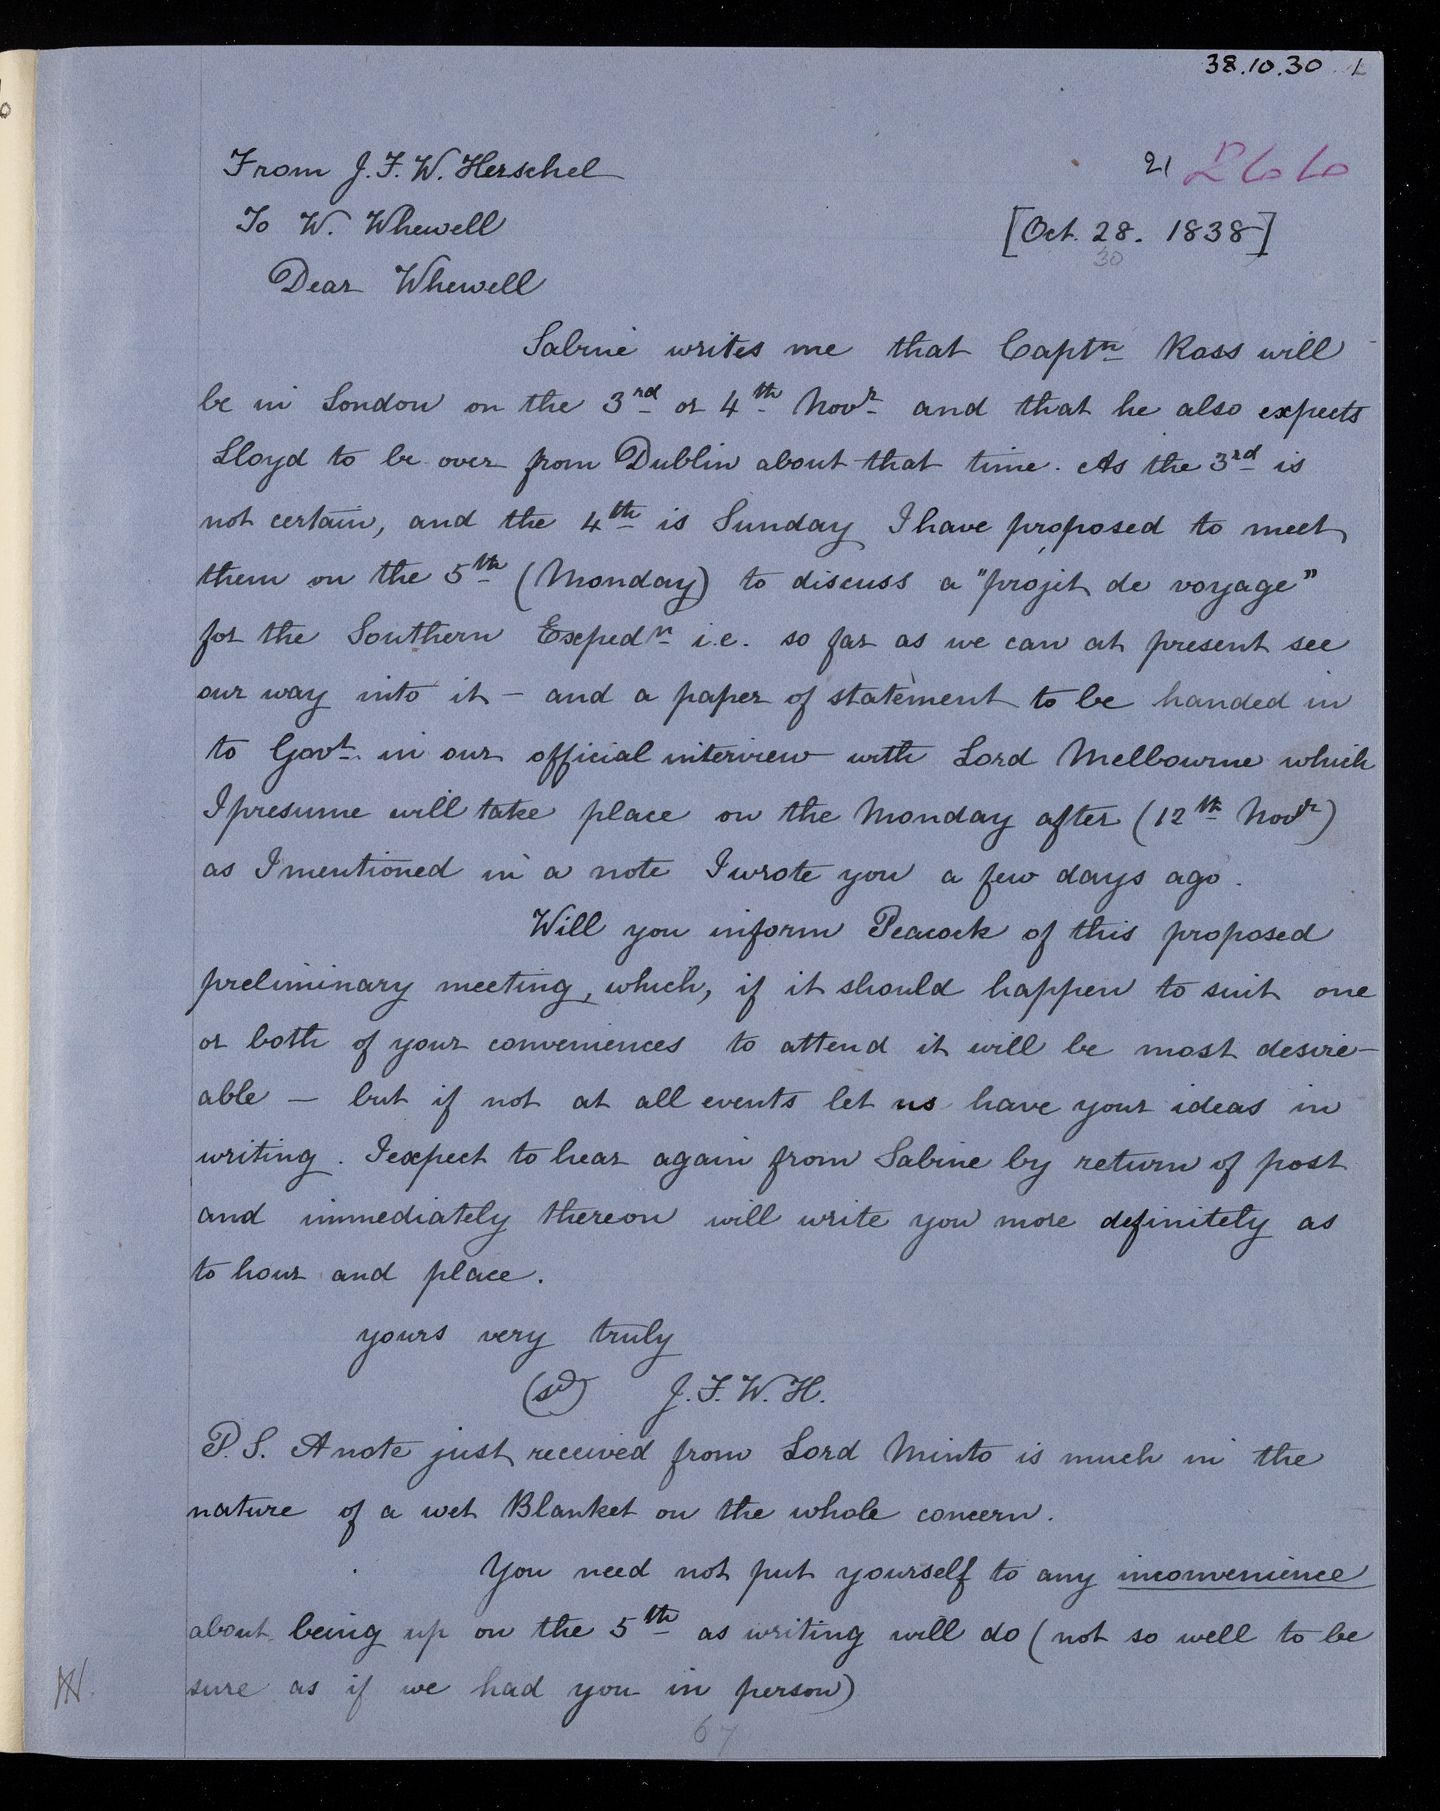 38.10.30 L
From J. F. W. Herschel
21
To W. Whewell
[Oct. 28. 1838]
30
Dear Whewell
Sabine writes me that Captn Ross will
be in London on the 3rd or 4th Novr and that he also expects
Lloyd to be over from Dublin about that time. As the 3rd is
not certain, and the 4th is Sunday I have proposed to meet
them on the 5th (Monday) to discuss a "projet de voyage"
for the Southern Expedn i.e. so far as we can at present see
our way into it - and a paper of statement to be handed in
to Govt in our official interview with Lord Melbourne which
I presume will take place on the Monday after (12th Novr)
as I mentioned in a note I wrote you a few days ago.
Will you inform Peacock of this proposed
preliminary meeting, which, if it should happen to suit one
or both of your conveniences to attend it will be most desire-
able - but if not at all events let us have your ideas in
writing. I expect to hear again from Sabine by return of post
and immediately thereon will write you more definitely as
to hour and place.
yours very truly
(sd) J. F. W. H.
P. S. A note just received from Lord Minto is much in the
nature of a wet Blanket on the whole concern.
You need not put yourself to any inconvenience
about being up on the 5th as writing will do (not so well to be
sure as if we had you in person)
67